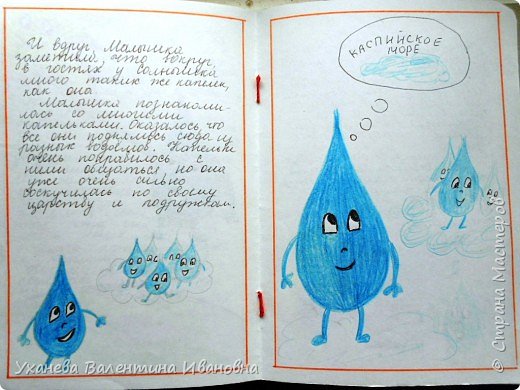 И вдруг Малышка
заметила, что вокруг,
в гостях у солнышка
много таких же капелек,
как она.
Малышка познакоми-
лась со многими
капельками. Оказалось что
все они поднялись сюда из
разных водоёмов. Капельке
очень понравилось с
ними общаться, но она
уже очень сильно
соскучилась по своему
царству и подружкам.
КАСПИЙСКОЕ
МОРЕ
Уханева Валентина Ивановна
© Страна Мастеров